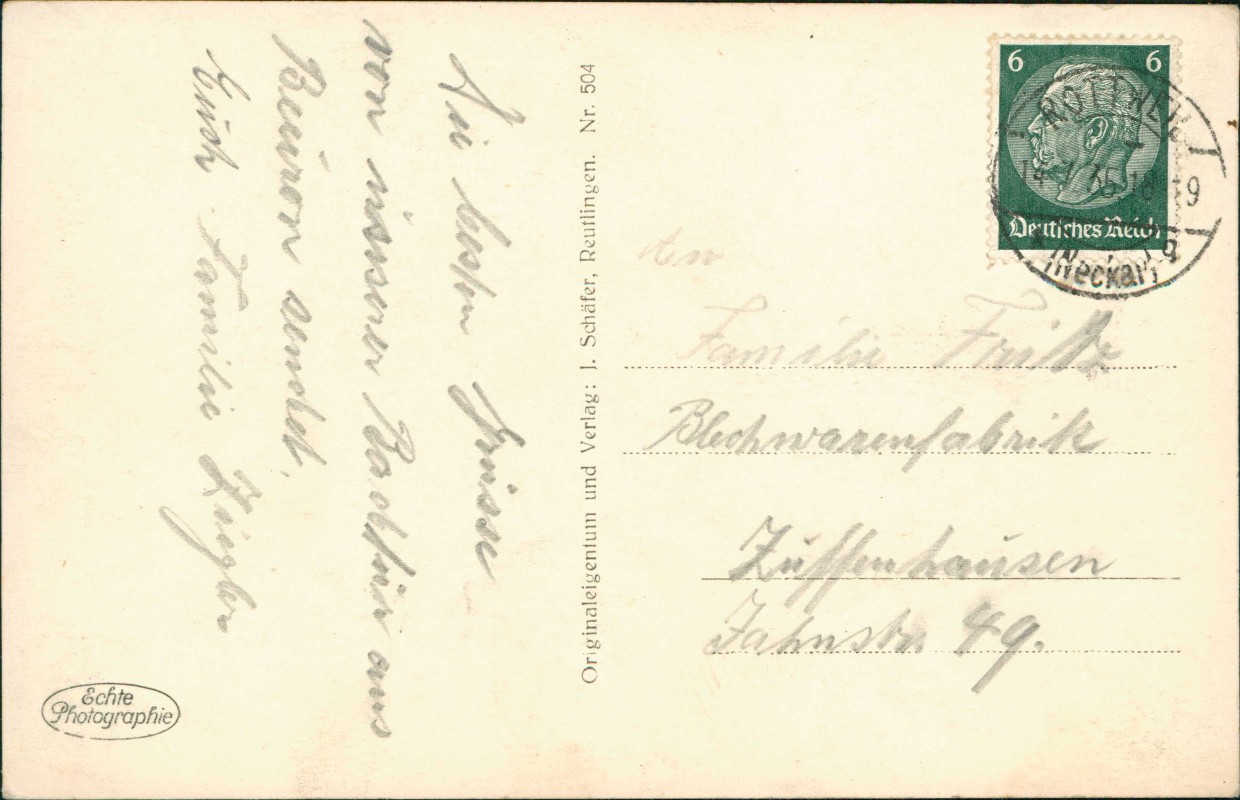 Die besten Grüsse
von unserer Radtour aus
Beuron sendet
Euch Familie Ziegler
Echte
Photographie
Originaleigentum und Verlag: J. Schäfer, Reutlingen. Nr. 504
6 6
Deutsches Reich
14.7.35 18-19
(Neckar)
An
Familie Fritz
Blechwarenfabrik
Zuffenhausen
Jahnstr. 49.